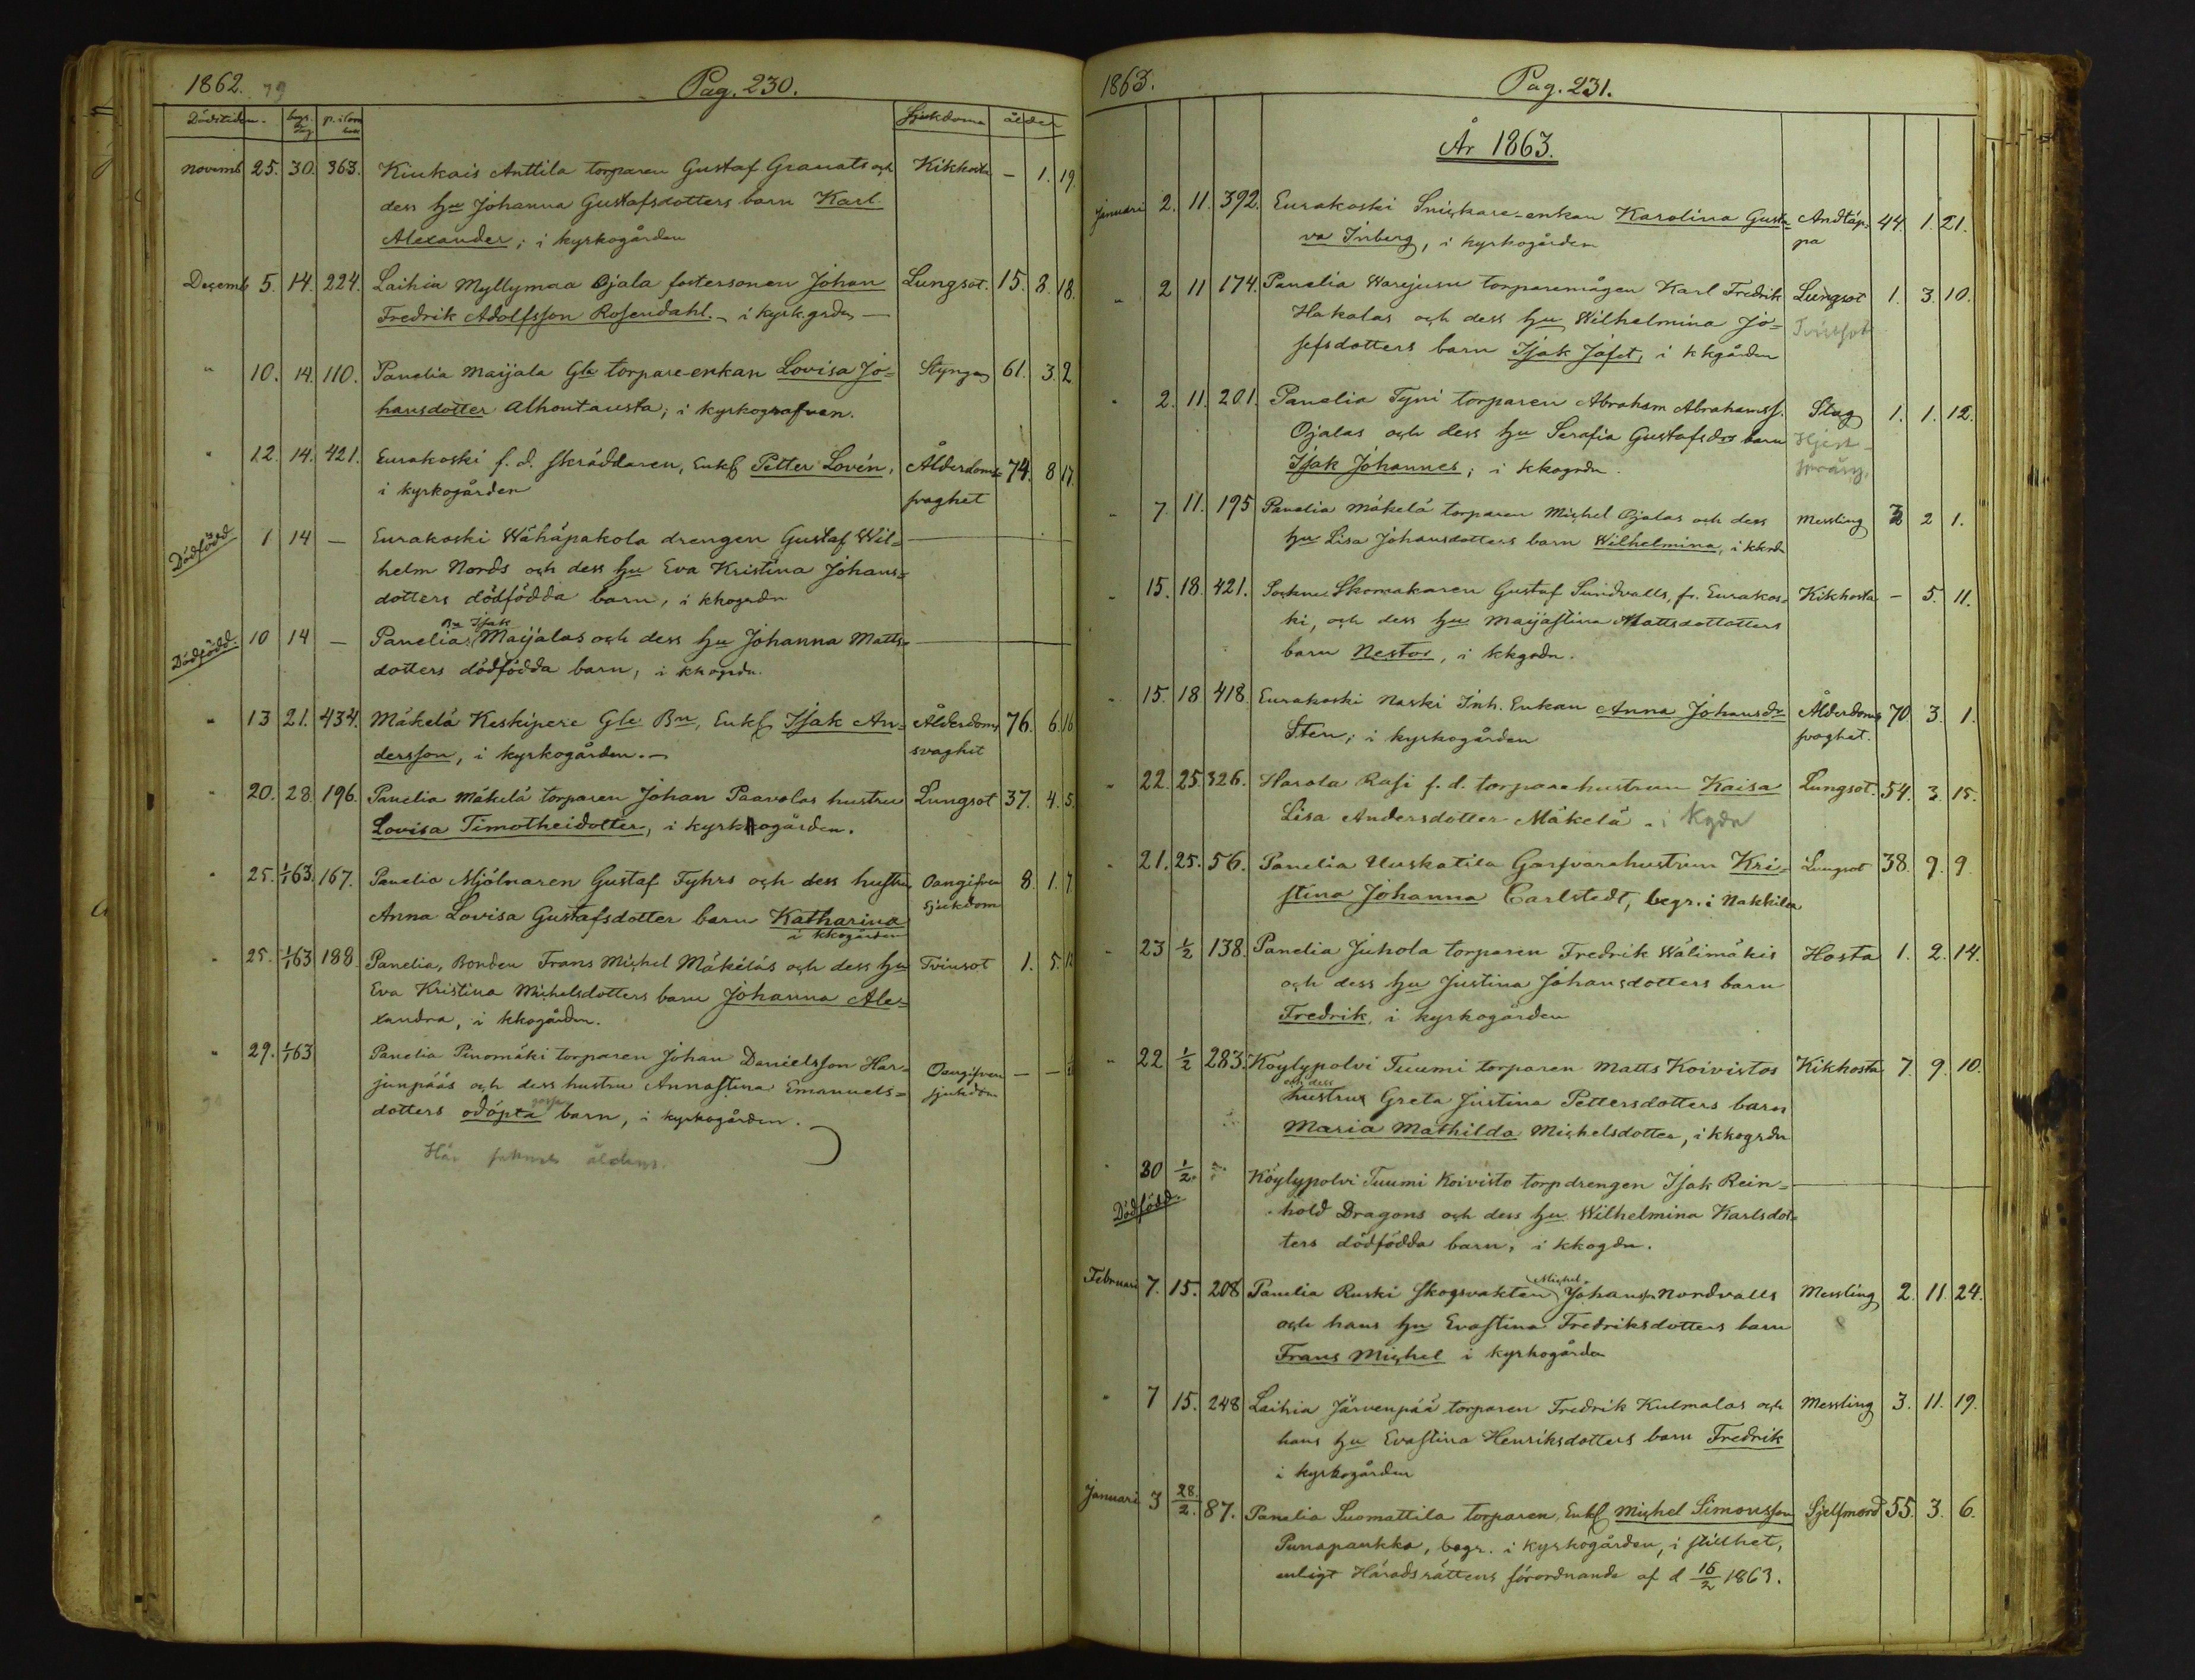 1862. 79 Pag. 230.
Dödstiden. begr. dag p. i Com bok Sjukdomar ålder
Novemb 25. 30. 363. Kiukais Anttila torparen Gustaf Granats och Kikhosta — 1. 19.
dess hu Johanna Gustafsdotters barn Karl
Alexander; i kyrkogården
Decemb 5. 14. 224. Laihia Myllymaa Ojala fostersonen Johan Lungsot. 15. 8. 18.
Fredrik Adolfsson Rosendahl. – i kyrk.grdn —
" 10. 14. 110. Panelia Maijala Gla torpare-enkan Lovisa Jo= Styng 61. 3. 2
hansdotter Alhontausta; i kyrkografven.
" 12. 14. 421. Eurakoski f. d. skräddaren, Enkl Petter Lovén, Ålderdoms= 74. 8 17.
i kyrkogården svaghet
Dödfödd 1 14 — Eurakoski Wähäpakola drengen Gustaf Wil=
helm Nords och dess hu Eva Kristina Johans=
dotters dödfödda barn, i kkogrdn
Bn Isak
Dödfödd. 10 14 — Panelia Maijalas och dess hu Johanna Matts=
dotters dödfödda barn, i kkogrdn.
" 13 21. 434. Mäkelä Keskipere Gle Bn, Enkl Isak An= Ålderdoms 76. 6. 16
dersson, i kyrkogården. – svaghet
" 20. 28. 196. Panelia Mäkelä torparen Johan Paavolas hustru Lungsot 37. 4. 5.
Lovisa Timotheidotter, i kyrkogården.
" 25. 1/1 63. 167. Panelia Mjölnaren Gustaf Fyhrs och dess hustru Oangifven 8. 1. 7
Anna Lovisa Gustafsdotter barn Katharina sjukdom
i kkogården
" 25. 1/1 63 188. Panelia, Bonden Frans Michel Mäkeläs och dess hu Tvinsot 1. 5.
Eva Kristina Michelsdotters barn Johanna Ale=
xandra, i kkogården.
" 29. 1/1 63 Panelia Pinomäki torparen Johan Danielsson Har= Oangifven — —
junpääs och dess hustru Annastina Emanuels= sjukdom
dotters odöpta barn, i kyrkogården.
Här
1863. Pag. 231.
År 1863.
Januari 2. 11. 392. Eurakoski Snickare-enkan Karolina Gusta= Andtäp= 44. 1. 21.
va Inberg, i kyrkogården pa
" 2 11 174. Panelia Warjusu torparemågen Karl Fredrik Lungsot 1. 3. 10.
Hakalas och dess hu Wilhelmina Jo= Tvinsot
sefsdotters barn Isak Jafet, i kkgården
" 2. 11. 201. Panelia Tyni torparen Abraham Abrahamss. Slag 1. 1. 12.
Ojalas och dess hu Serafia Gustafsdrs barn Hjert-
Isak Johannes; i kkogrdn. språng.
" 7. 11. 195 Panelia Mäkelä torparen Michel Ojalas och dess Messling 2 2 1.
hu Lisa Johansdotters barn Wilhelmina, i kkrdn
" 15. 18. 421. Sockne Skomakaren Gustaf Sundvalls, fr. Eurakos= Kikhosta – 5. 11.
ki, och dess hu Maijastina Mattsdottotters
barn Nestor, i kkgrdn.
" 15. 18 418. Eurakoski Naski Inh. Enkan Anna Johansdr Ålderdoms 70 3. 1.
Sten; i kyrkogården svaghet.
" 22. 25 326. Harola Rasi f. d. torpare hustrun Kaisa Lungsot. 54. 3. 15.
Lisa Andersdotter Mäkelä. i kgdn
" 21. 25. 56. Panelia Uuskatila Garfvarehustrun Kri= Lungsot 38. 9. 9
stina Johanna Carlstedt, begr. i Nakkila
" 23 1/2 138. Panelia Juhola torparen Fredrik Wälimäkis Hosta 1. 2. 14.
och dess hu Justina Johansdotters barn
Fredrik, i kyrkogården
" 22 1/2 283. Köylypolvi Tuumi torparen Matts Koivistos Kikhosta 7. 9. 10.
och dess
hustrus Greta Justina Pettersdotters barn
Maria Mathilda Michelsdotter, i kkogrdn
30 1/2 Köylypolvi Tuumi Koivisto torpdrengen Isak Rein=
Dödfödd. hold Dragons och dess hu Wilhelmina Karlsdot=
ters dödfödda barn; i kkogdn.
Michel
Februari 7. 15. 208 Panelia Ruski skogsvakten Johanss Nordvalls Messling 2. 11. 24.
och hans hu Evastina Fredriksdotters barn
Frans Michel i kyrkogården
" 7 15. 248 Laihia Järvenpää torparen Fredrik Kulmalas och Messling 3. 11. 19.
hans hu Evastina Henriksdotters barn Fredrik
i kyrkogården
Januari 3 28./2. 87. Panelia Suomattila torparen, Enkl Michel Simonsson Sjelfmord 55. 3. 6.
Punapaukka, begr. i kyrkogården, i stillhet,
enligt Häradsrättens förordnande af d 16/2 1863.